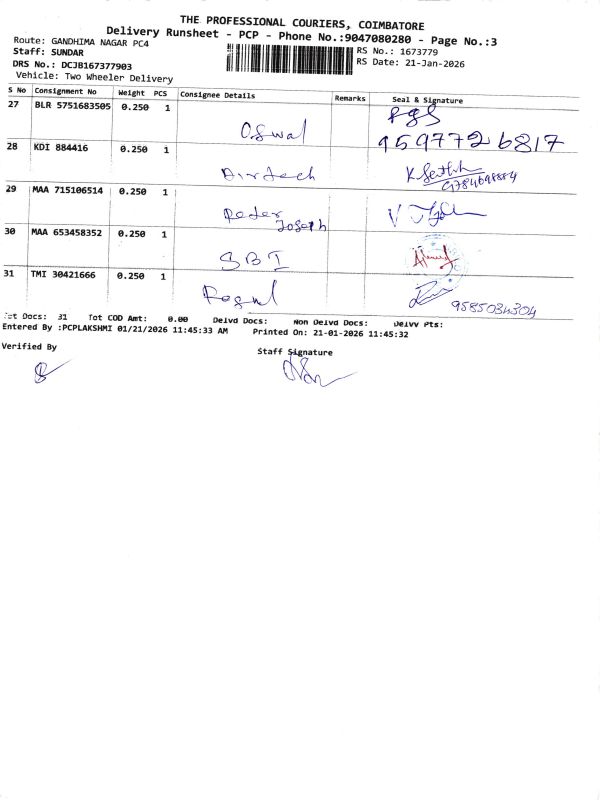 THE PROFESSIONAL COURIERS, COIMBATORE
Delivery Runsheet - PCP - Phone No.:9047080280 - Page No.:3
Route: GANDHIMA NAGAR PC4
RS No.: 1673779
Staff: SUNDAR
RS Date: 21-Jan-2026
DRS No.: DCJB167377903
Vehicle: Two Wheeler Delivery
S No Consignment No Weight PCS Consignee Details Remarks Seal & Signature
27 BLR 5751683505 0.250 1 Oswal
9597726817
28 KDI 884416 0.250 1 Airtech
29 MAA 715106514 0.250 1 Peter
Joseph
30 MAA 653458352 0.250 1 SBI
31 TMI 30421666 0.250 1
9585034304
Docs: 31 Tot COD Amt: 0.00 Delvd Docs: Non Delvd Docs: Delvv Pts:
Entered By :PCPLAKSHMI 01/21/2026 11:45:33 AM Printed On: 21-01-2026 11:45:32
Verified By
Staff Signature